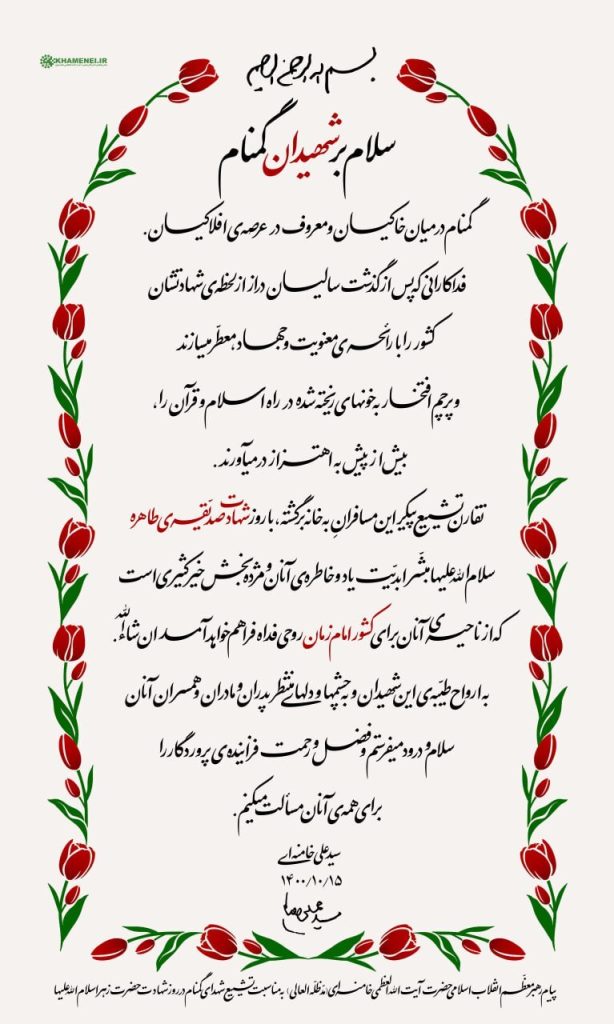 KHAMENEI.IR
بسم الله الرحمن الرحیم
سلام بر شهیدان گمنام
گمنام در میان خاکیان و معروف در عرصه‌ی افلاکیان.
فداکارانی که پس از گذشت سالیان دراز از لحظه‌ی شهادتشان
کشور را با رائحه‌ی معنویت و جهاد، معطّر میسازند
و پرچم افتخار به خونهای ریخته شده در راه اسلام و قرآن را،
بیش از پیش به اهتزاز درمیآورند.
تقارن تشییع پیکر این مسافرانِ به خانه برگشته، با روز شهادت صدیّقه‌ی طاهره
سلام الله علیها مبشّر ابدیّت یاد و خاطره‌ی آنان و مژده‌بخش خیر کثیری است
که از ناحیه‌ی آنان برای کشور امام زمان روحی فداه فراهم خواهد آمد ان شاءالله.
به ارواح طیّبه‌ی این شهیدان و چشمها و دلهای منتظر پدران و مادران و همسران آنان
سلام و درود میفرستم و فضل و رحمت فزاینده‌ی پروردگار را
برای همه‌ی آنان مسألت میکنم.
سید علی خامنه‌ای
۱۴۰۰/۱۰/۱۵
پیام رهبر معظّم انقلاب اسلامی حضرت آیت الله العظمی خامنه‌ای (مدّظلّه العالی) به مناسبت تشییع شهدای گمنام در روز شهادت حضرت زهرا سلام الله علیها